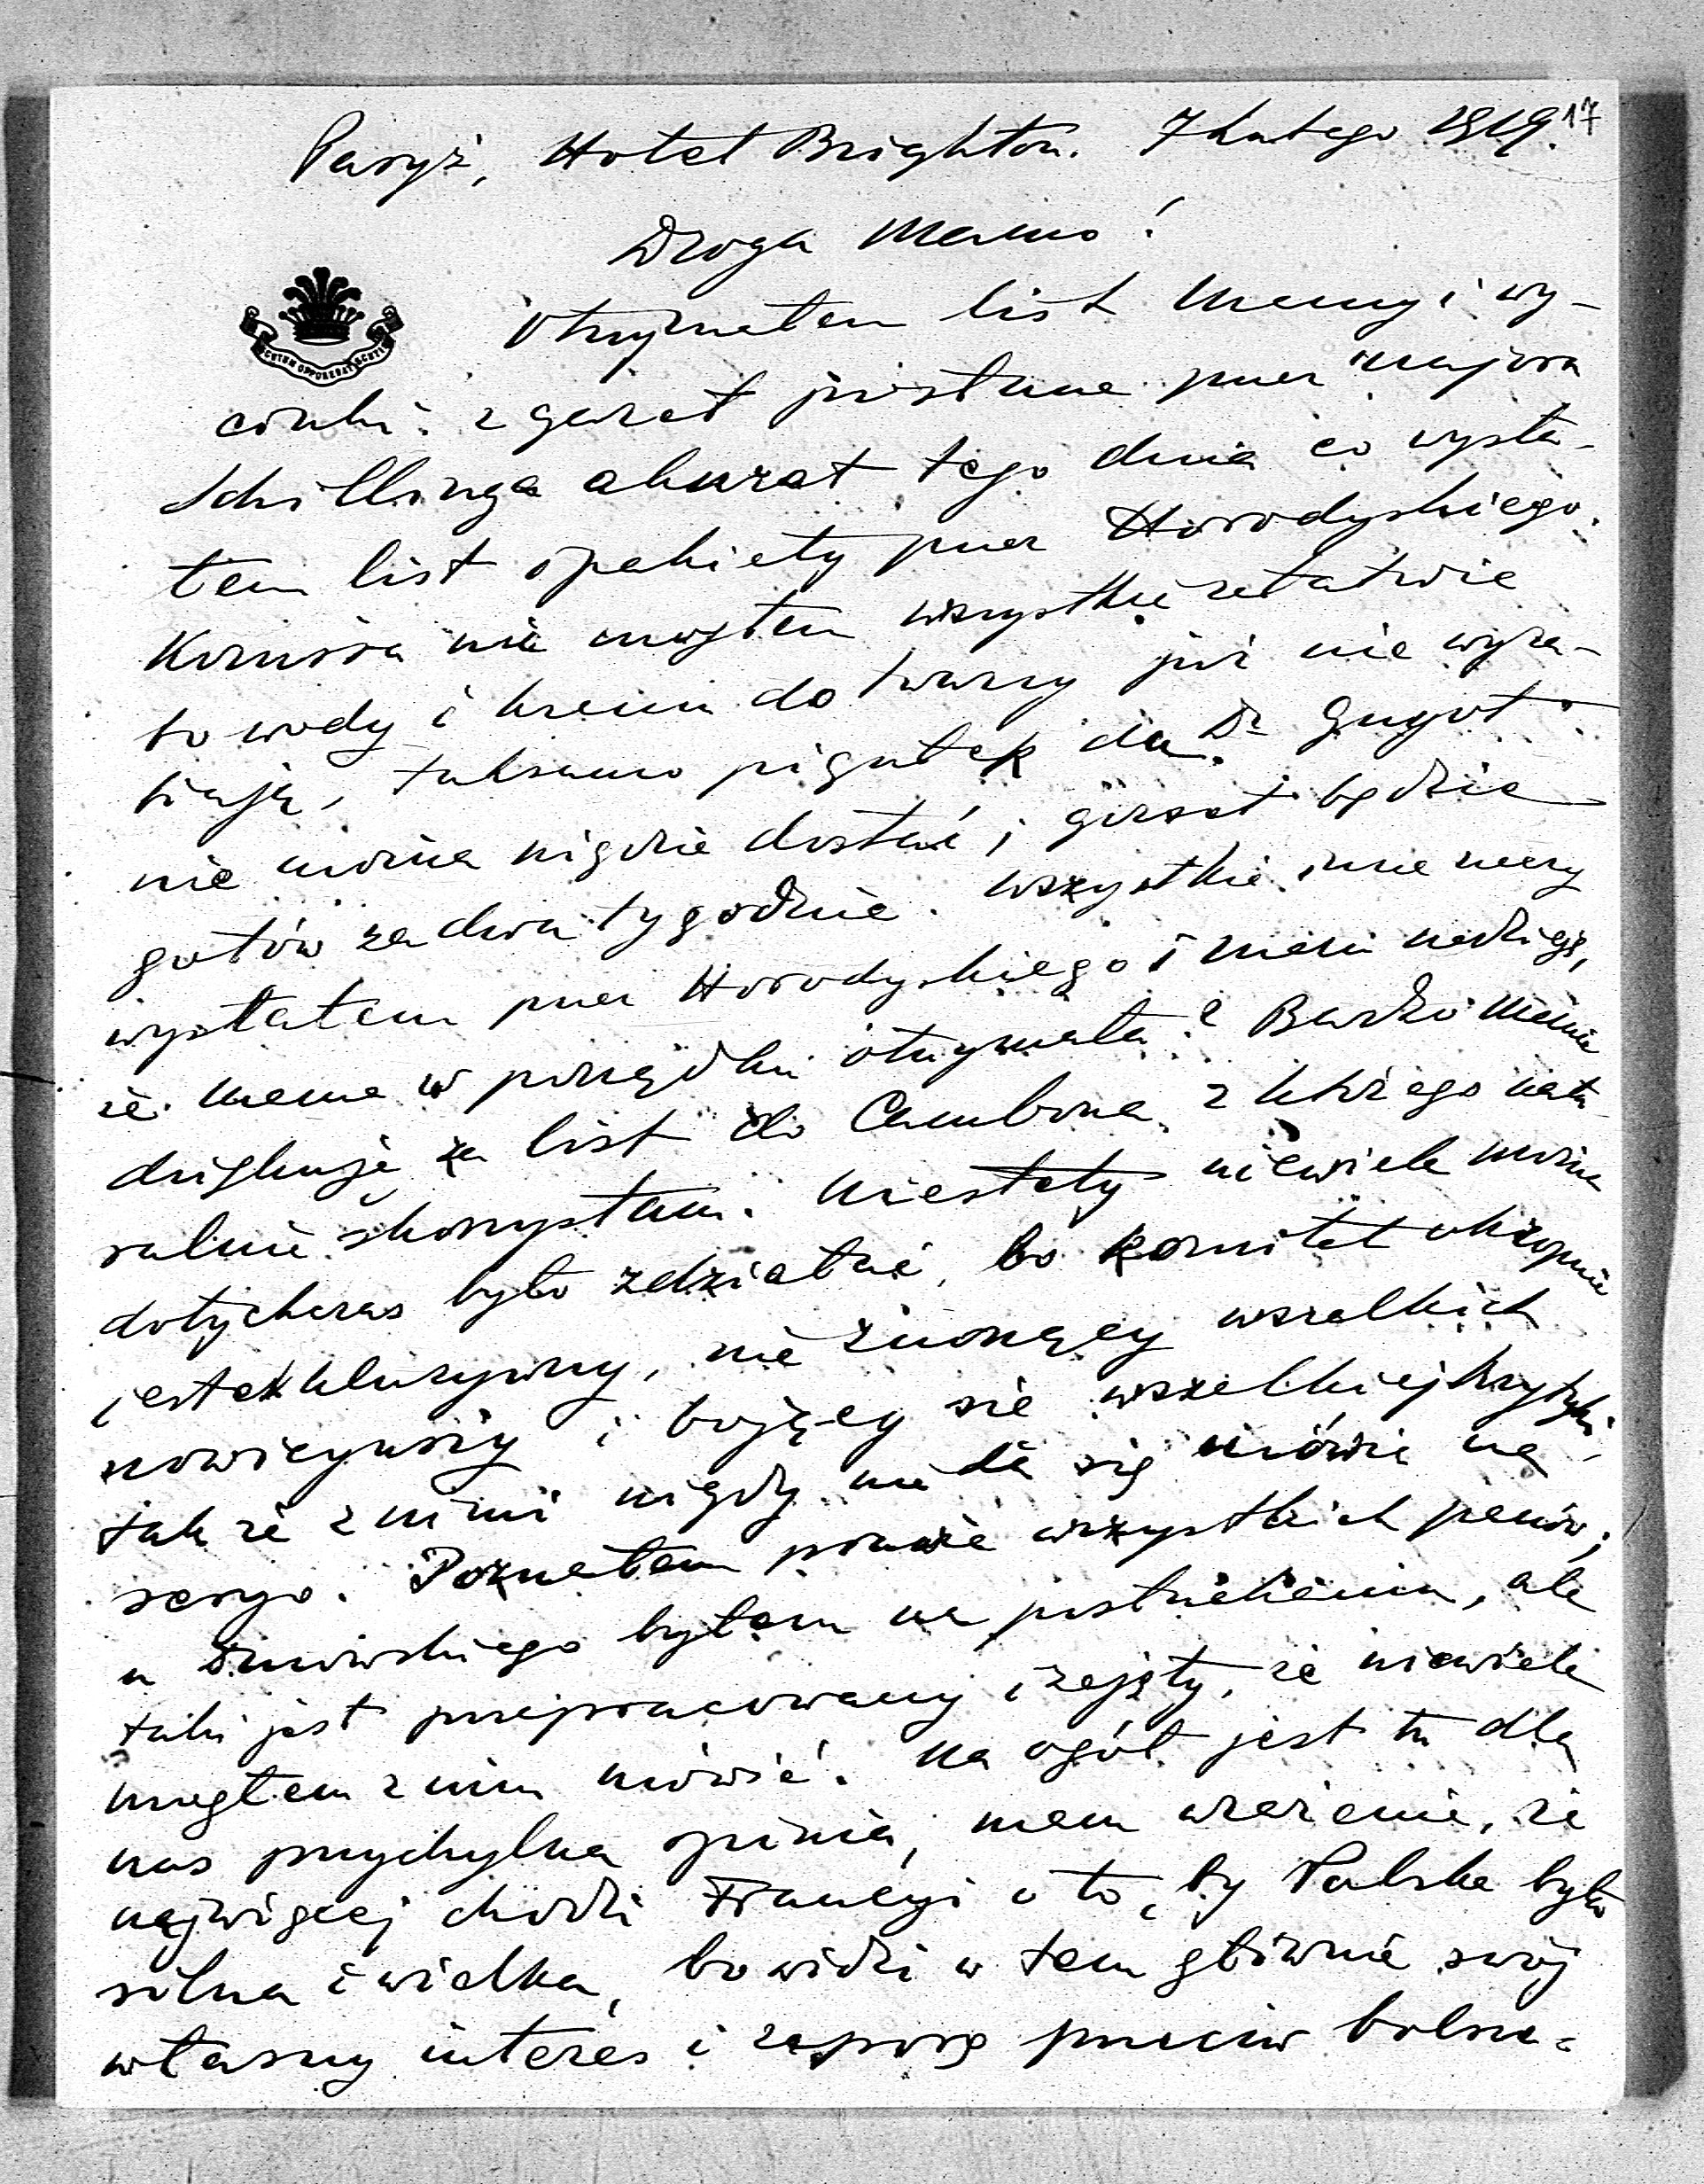 17
Paryż, Hotel Brighton. 7 Lutego 1919.
Droga Mamo!
SCUTUM OPPONEBAT SCUTIS
Otrzymałem list Mamy i wy-
cinki z gazet przysłane przez majora
Schillinga akurat tego dnia co wysła-
łem list i pakiety przez Horodyskiego.
Komisa nie mogłem wszystkie załatwić
bo wody i kremu do twarzy już nie wyra-
biają, taksamo pigułek da Dr Guyot
nie można nigdzie dostać; gorset będzie
gotów za dwa tygodnie. Wszystkie inne rzeczy
wysłałem przez Horodyskiego i mam nadzieję,
że Mama w porządku otrzymała? Bardzo Mamie
dziękuję za list do Cambona z którego natu-
ralnie skorzystam. Niestety niewiele można
dotychczas było zdziałać, bo komitet okropnie
jest exkluzywny, nie znoszący wszelkich
nowicyuszy i bojący się wszelkiej krytyki,
tak że z nimi nigdy nie da się mówić na
seryo. Poznałem prawie wszystkich panów;
u Dmowskiego byłem na posłuchaniu, ale
taki jest przepracowany i zajęty, że niewiele
mogłem z nim mówić. Na ogół jest tu dla
nas przychylna opinia, mam wrażenie, że
najwięcej chodzi Francyi o to, by Polska była
silna i wielka, bo widzi w tem głównie swój
własny interes i zaporę przeciw bolsze-